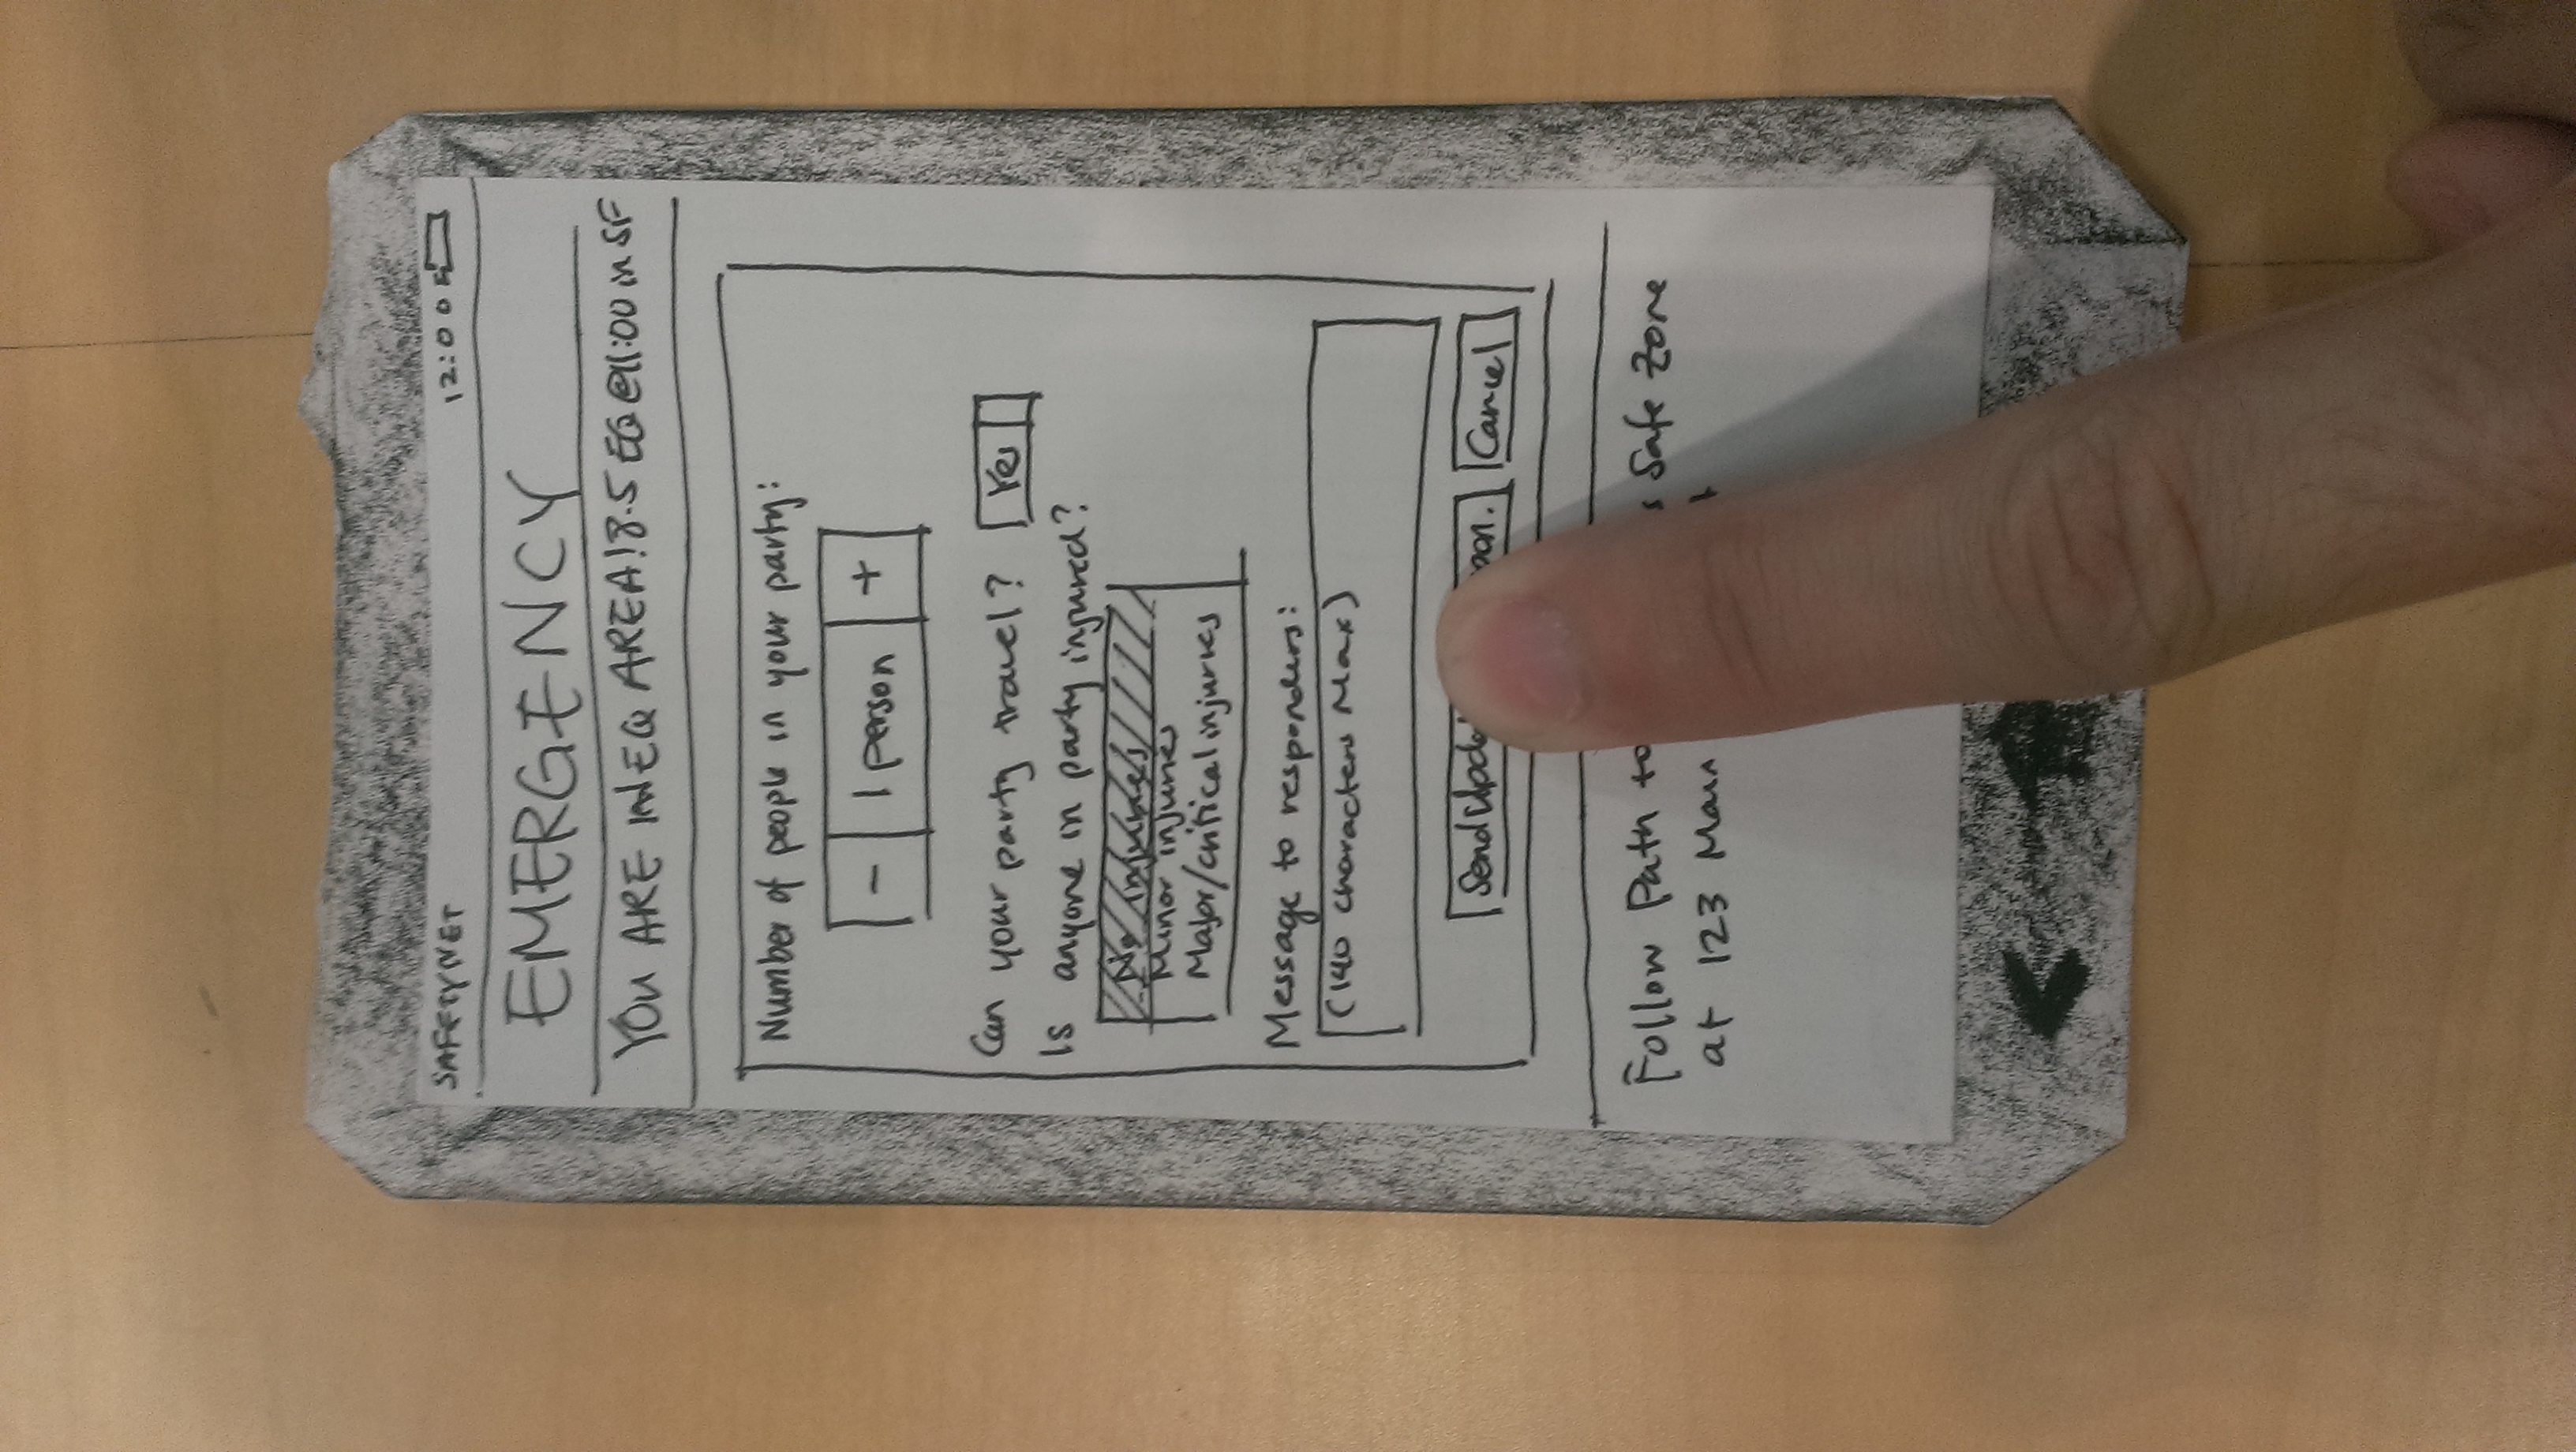 SAFETYNET 12:00
EMERGENCY
YOU ARE IN EQ AREA! 8.5 EQ @ 11:00 in SF
Number of people in your party:
- 1 person +
Can your party travel? Yes
Is anyone in party injured?
No injuries
Minor injuries
Major/critical injuries
Message to responders:
(140 characters Max)
Send Cancel
Follow Path to safe zone
at 123 Main